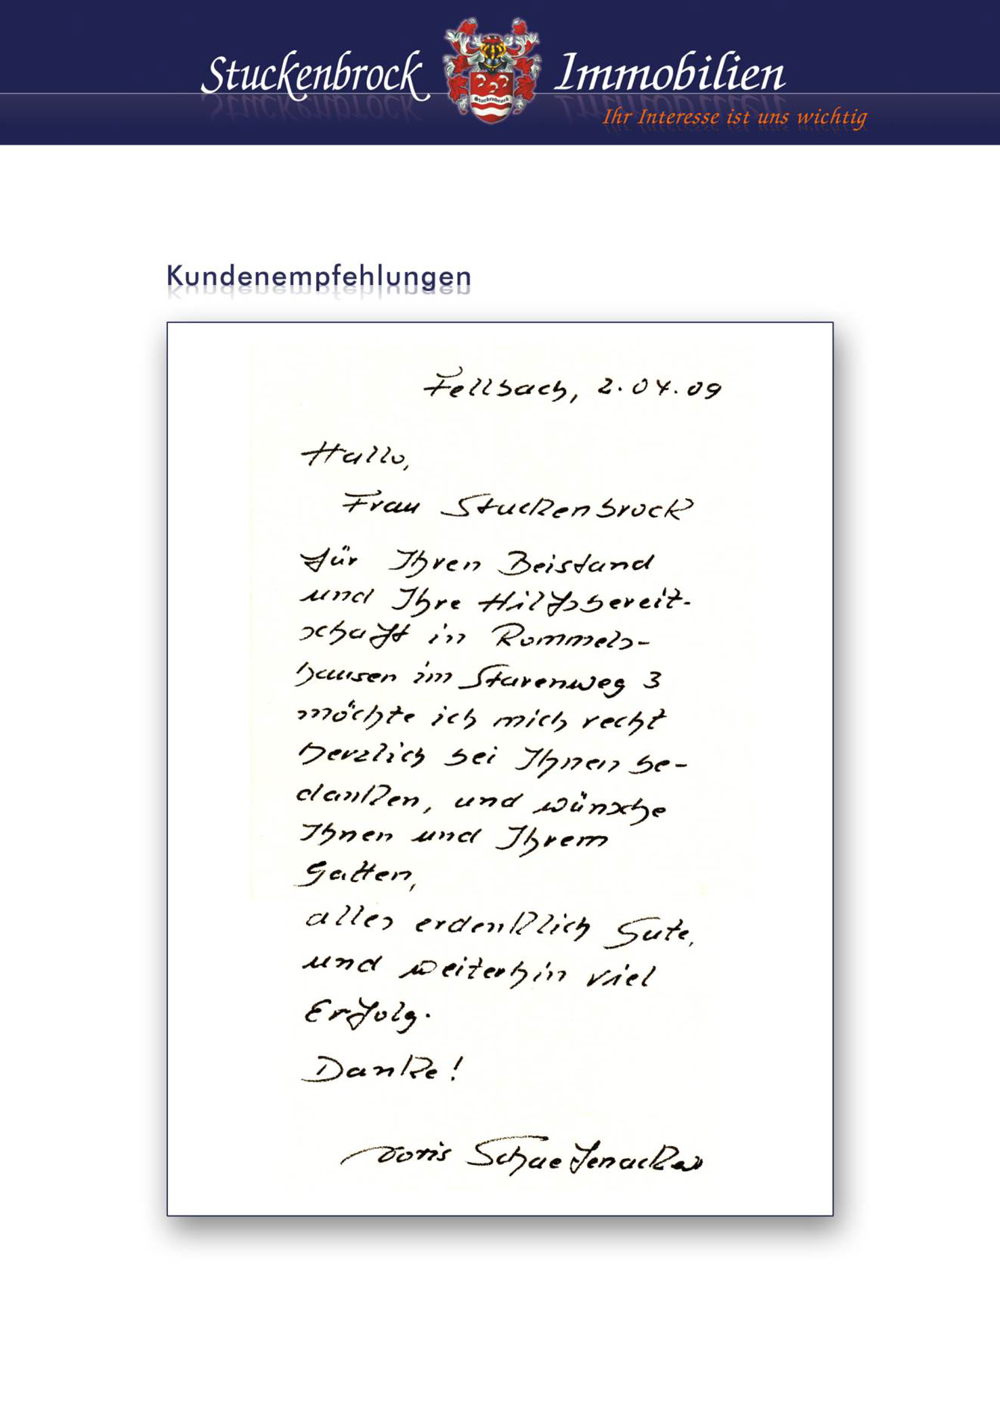 Stuckenbrock Immobilien
Stuckenbrock
Ihr Interesse ist uns wichtig
Kundenempfehlungen
Fellbach, 2.04.09
Hallo,
Frau Stuckenbrock
für Ihren Beistand
und Ihre Hilfsbereit-
schaft in Rommels-
hausen im Starenweg 3
möchte ich mich recht
herzlich bei Ihnen be-
danken, und wünsche
Ihnen und Ihrem
Gatten,
alles erdenklich Gute,
und weiterhin viel
Erfolg.
Danke!
Doris Schaefenacker